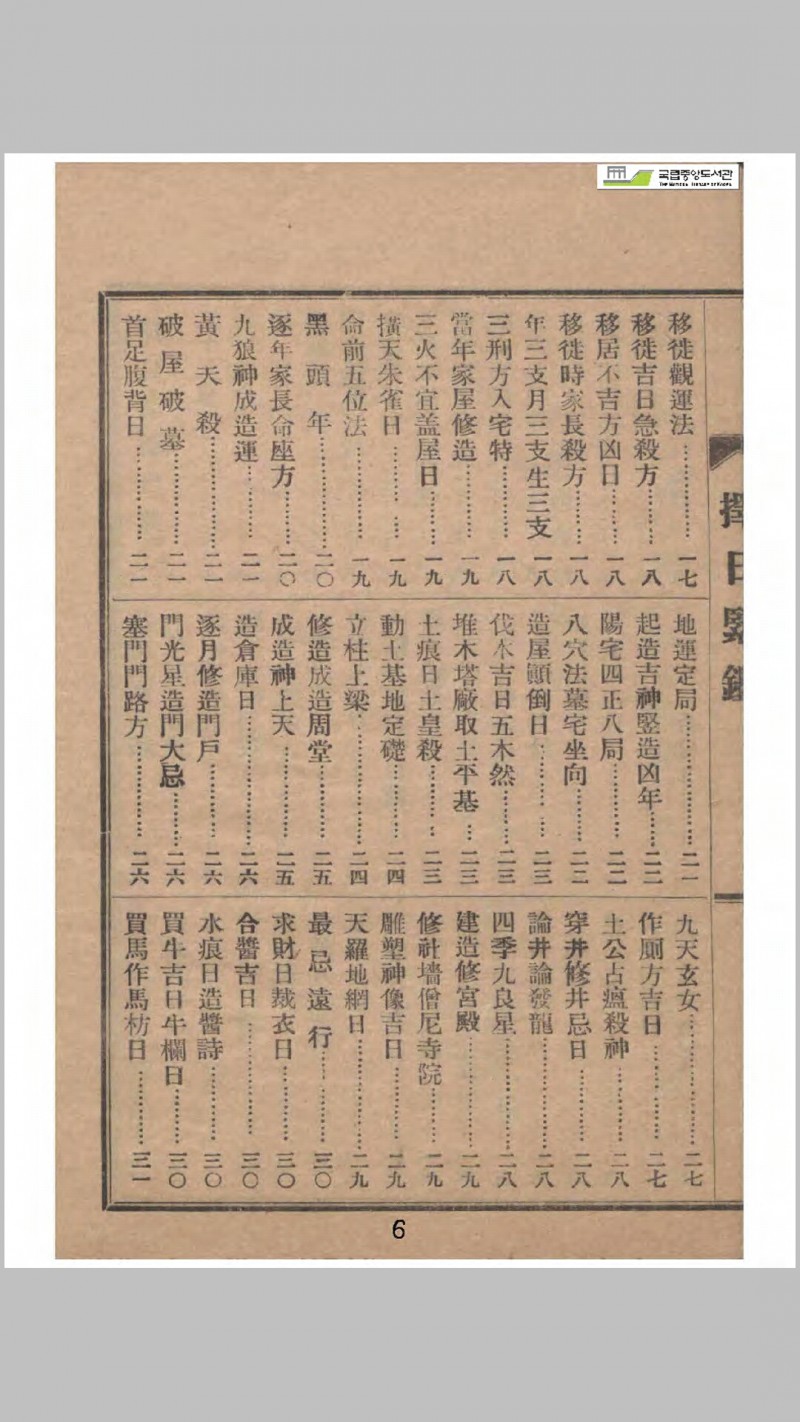 국립중앙도서관
THE NATIONAL LIBRARY OF KOREA
擇日
移徙觀運法……………一七
移徙吉日急殺方………一八
移居不吉方凶日………一八
移徙時家長殺方………一八
年三支月三支生三支 一八
三刑方入宅特…………一八
當年家屋修造…………一九
三火不宜盖屋日………一九
擴天朱雀日……………一九
命前五位法……………一九
黑頭年…………………二〇
逐年家長命座方………二〇
九狼神成造運…………二一
黃天殺…………………二一
破屋破墓………………二一
首足腹背日……………二一
地運定局………………二一
起造吉神竪造凶年……二二
陽宅四正八局…………二二
八穴法墓宅坐向………二二
造屋顚倒日……………二三
伐木吉日五木然………二三
堆木塔廠取土平基……二三
土痕日土皇殺…………二三
動土基地定礎…………二四
立柱上梁………………二四
修造成造周堂…………二五
成造神上天……………二五
造倉庫日………………二六
逐月修造門戶…………二六
門光星造門大忌………二六
塞門門路方……………二六
九天玄女………………二七
作厠方吉日……………二七
土公占瘟殺神…………二八
穿井修井忌日…………二八
論井論發龍……………二八
四季九良星……………二八
建造修宮殿……………二九
修社墻僧尼寺院………二九
雕塑神像吉日…………二九
天羅地網日……………二九
最忌遠行………………三〇
求財日裁衣日…………三〇
合醬吉日………………三〇
水痕日造醬詩…………三〇
買牛吉日牛欄日………三〇
買馬作馬枋日…………三一
6